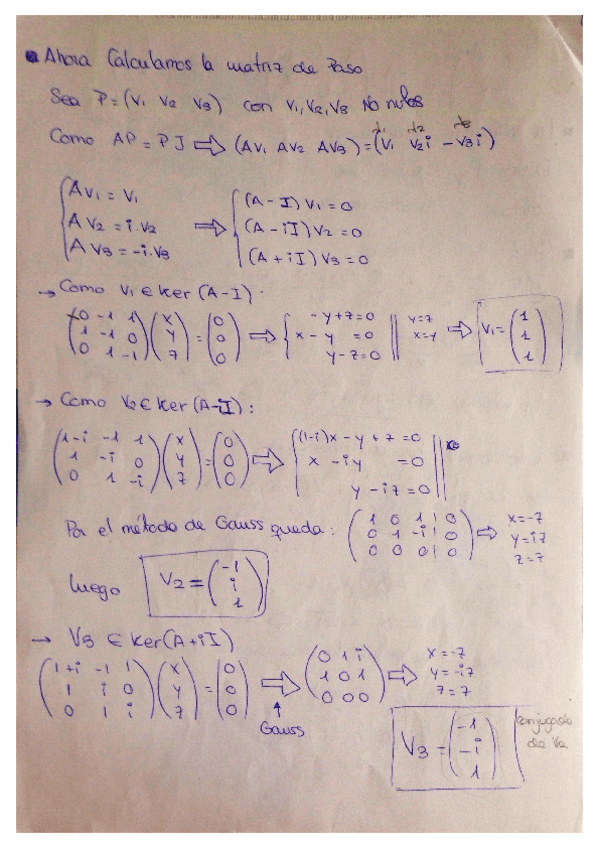 Ahora Calculamos la matriz de Paso
Sea P = (V1 V2 V3) con V1, V2, V3 No nulos
Como AP = PJ ⇒ (AV1 AV2 AV3) = (V1 V2i -V3i)
{ AV1 = V1 ⇒ { (A - I) V1 = 0
A V2 = i·V2 (A - iI) V2 = 0
A V3 = -i·V3 (A + iI) V3 = 0
→ Como V1 ∈ Ker (A-I)
(0 -1 1; 1 -1 0; 0 1 -1) (x; y; z) = (0; 0; 0) ⇒ { -y+z=0; x-y =0; y-z=0 || y=z; x=y ⇒ V1 = (1; 1; 1)
→ Como V2 ∈ Ker (A-iI):
(1-i -1 1; 1 -i 0; 0 1 -i) (x; y; z) = (0; 0; 0) ⇒ { (1-i)x - y + z = 0; x - iy = 0; y - iz = 0 ||
Por el método de Gauss queda: (1 0 1 | 0; 0 1 -i | 0; 0 0 0 | 0) ⇒ x=-z; y=iz; z=z
luego V2 = (-1; i; 1)
→ V3 ∈ Ker (A+iI)
(1+i -1 1; 1 i 0; 0 1 i) (x; y; z) = (0; 0; 0) ⇒ (0 1 i; 1 0 1; 0 0 0) ⇒ x=-z; y=-iz; z=z
↑
Gauss
V3 = (-1; -i; 1) conjugado
de V2